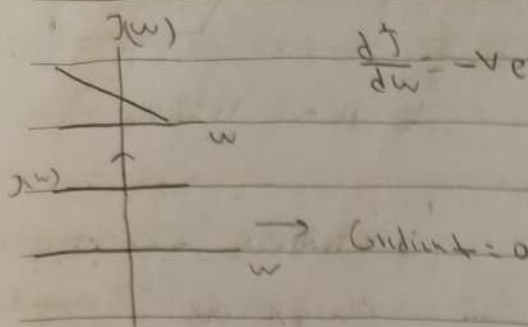 J(w)
dJ/dw = -ve
w
J(w)
Gradient = 0
w